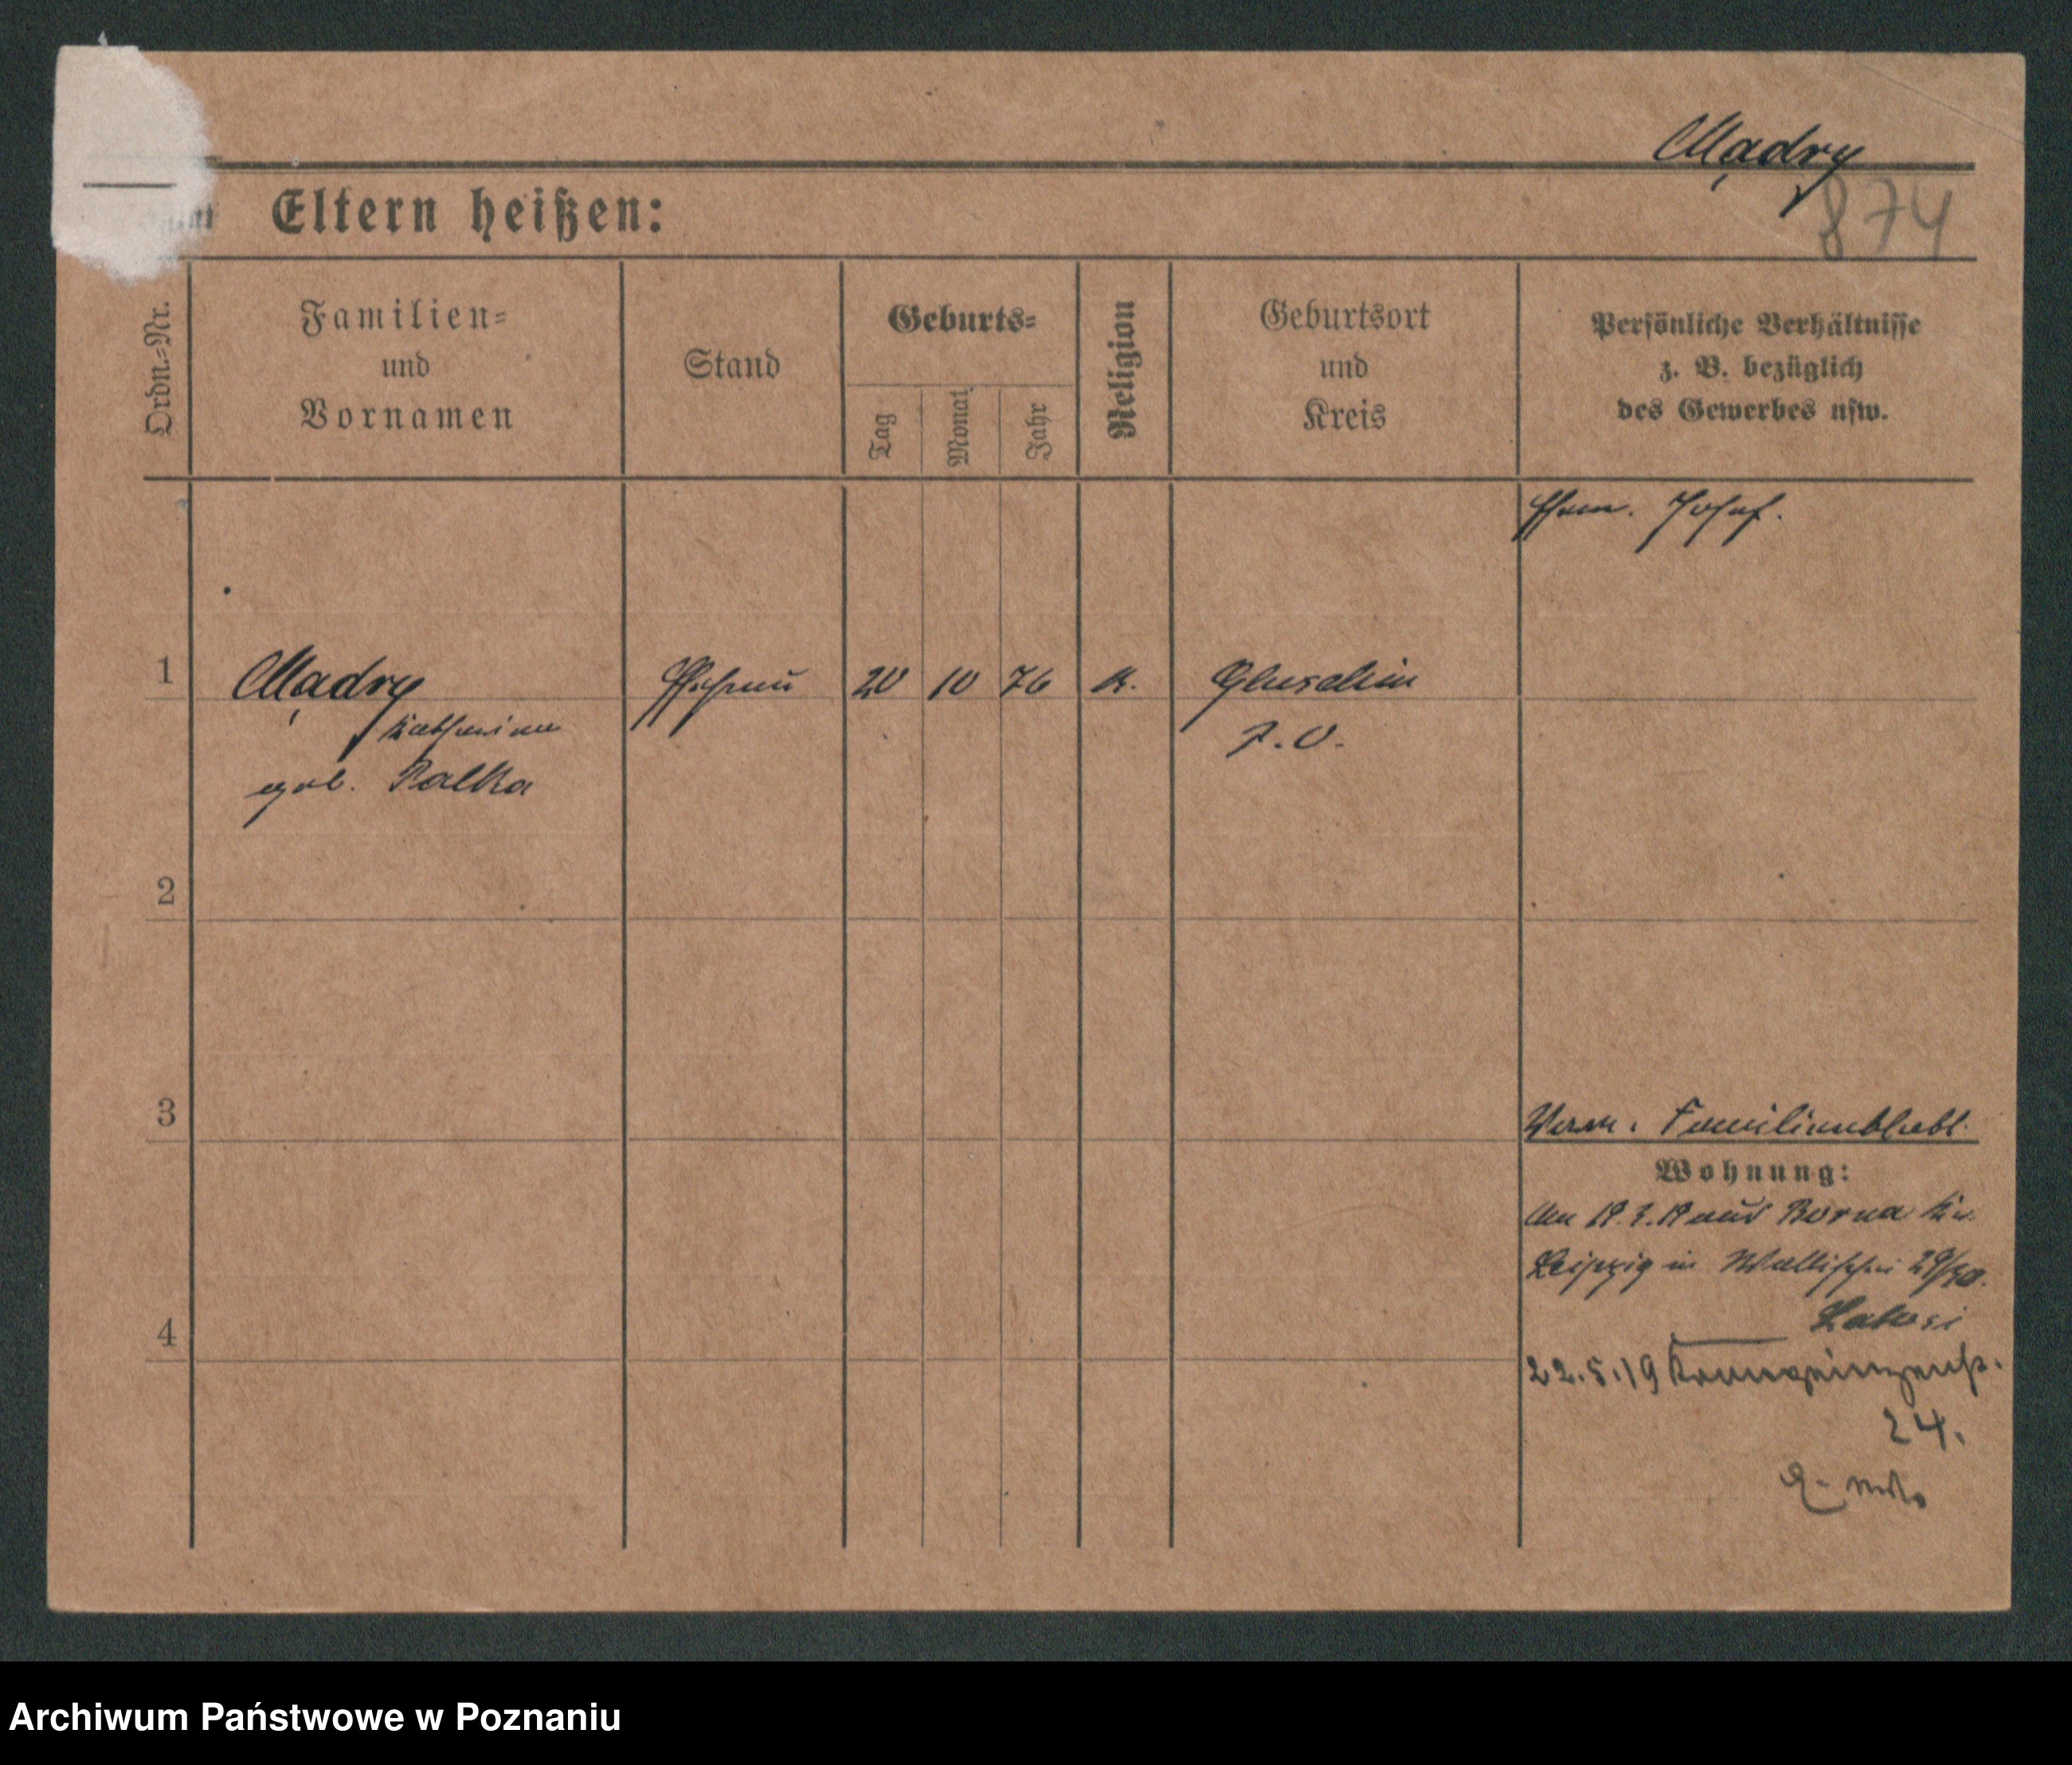 Mądry
874
Eltern heißen:
Ordn.-Nr.
Familien-
und
Vornamen
Stand
Geburts-
Tag
Monat
Jahr
Religion
Geburtsort
und
Kreis
Persönliche Verhältnisse
z. B. bezüglich
des Gewerbes usw.
Ehem. Josef.
1
Mądry
Katharina
geb. Palka
Ehefrau
20
10
76
K.
Gluschin
P. O.
2
3
Verm. Familienblatt.
Wohnung:
Am 19.3.19 aus Borna Kr.
Leipzig in Wallischei 29/30.
4
22.5.19 Kronprinzenstr.
24.
Archiwum Państwowe w Poznaniu